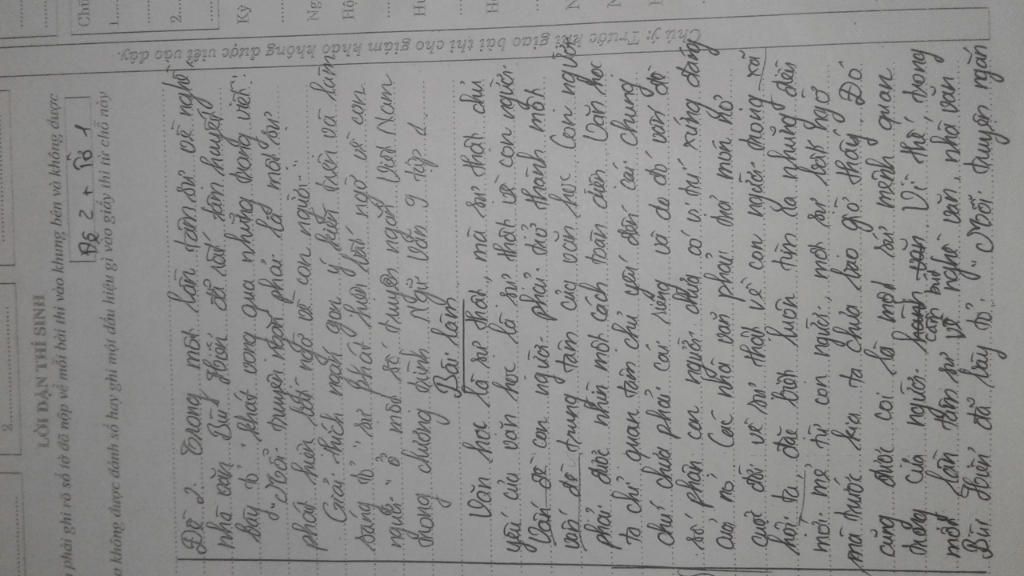 Chữ
1.
2.
Kỳ
Ng
Hộ
Hu
Chú ý: Trước khi giao bài thi cho giám khảo không được viết vào đây.
2.
LỜI DẶN THÍ SINH
phải ghi rõ số tờ đã nộp về môn bài thi vào khung bên và không được
a không được đánh số hay ghi một dấu hiệu gì vào giấy thi từ chỗ này
Đề 2 + Đề 1
Đề 2. Trong một lần tâm sự về nghề
nhà văn Bùi Hiển đã rất tâm huyết
bày tỏ khát vọng qua những trang viết:
"Mỗi truyện ngắn phải là một sự
phát hiện bất ngờ về con người."
Giải thích ngắn gọn ý kiến trên và làm
sáng tỏ "sự phát hiện bất ngờ về con
người" ở một số truyện ngắn Việt Nam
trong chương trình Ngữ Văn 9 tập 1.
Bài làm
Văn học là sự thật, mà sự thật chủ
yếu của văn học là sự thật về con người.
Vấn đề con người phải trở thành một
vấn đề trung tâm của văn học. Con người
phải được nhìn một cách toàn diện. Văn học
ta chỉ quan tâm chủ yếu đến cái chung
chứ chưa phải cái riêng và do đó vấn đề
số phận con người chưa có vị trí xứng đáng
của nó. Các nhà văn phải thỏ mãn
quá đối về sự thật về con người trong xã
hội ta, đều biết luôn tìm ra những điều
mới mẻ từ con người, một sự bất ngờ
mà trước kia ta chưa bao giờ thấy. Đó
cũng được coi là một sứ mệnh quan
trọng của người cầm bút. Vì thế trong
một lần tâm sự về nghề văn, nhà văn
Bùi Hiển đã bày tỏ: "Mỗi truyện ngắn